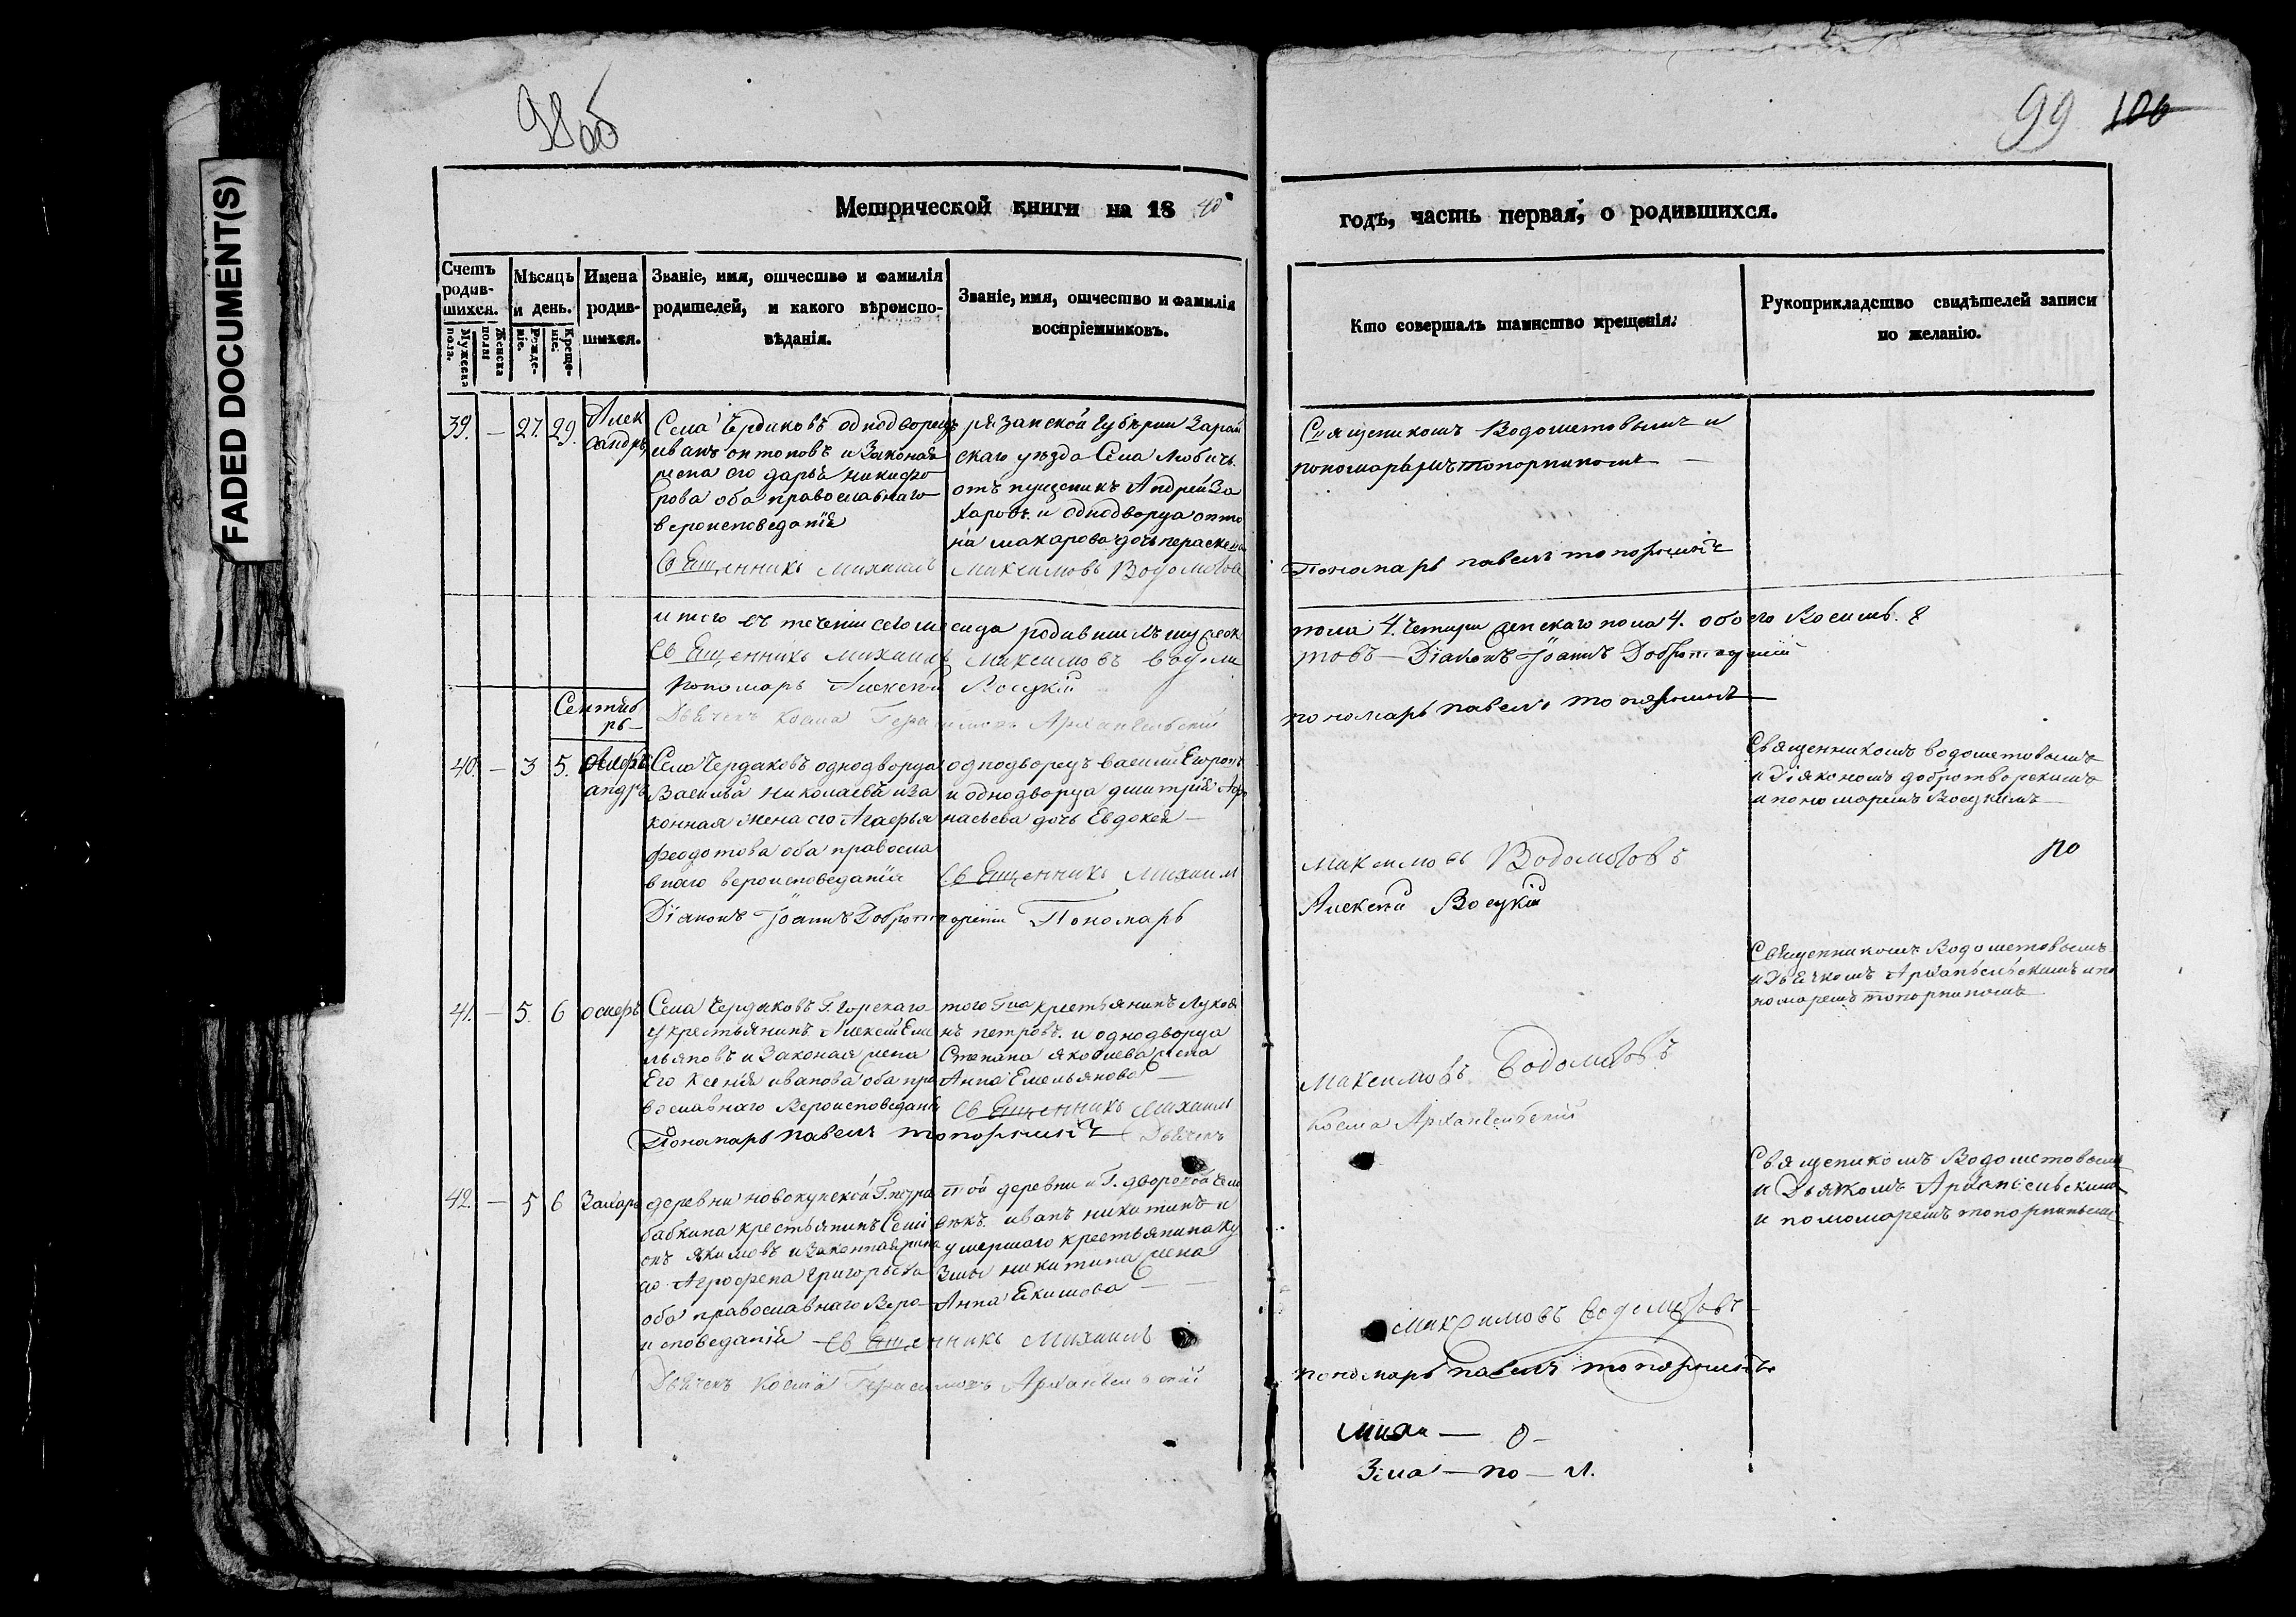 FADED DOCUMENT(S)
98об
99 100
Метрической книги на 1840
годъ, часть первая, о родившихся.
Счетъ родившихся.
Мужеска пола.
Женска пола.
Мѣсяцъ и день.
Рожденіе.
Крещеніе.
Имена родившихся.
Званіе, имя, отчество и фамилія
родителей, и какого вѣроиспо-
вѣданія.
Званіе, имя, отчество и фамилія
воспріемниковъ.
Кто совершалъ таинство крещенія.
Рукоприкладство свидѣтелей записи
по желанію.
39. — 27. 29. Алек
сандръ
Села Чердаковъ однодворецъ
иванъ онтоновъ и Законая
жена его дарья никифо
рова оба православнаго
вероисповеданія
рязанской Губерніи Зарай
скаго уезда Села Любичь
отъ пущеникъ Андрей За
харовъ и однодворца онто
на макарова дочь параскева
Священикомъ Водометовымъ и
пономаремъ топорниномъ —
Священникъ Михаилъ Максимовъ Водометов
Пономарь павелъ топорнинъ
итого въ течении сего месяца родившихъ мужеск
пола 4. четыри женскаго пола 4. обоего Восимь. 8
Священникъ Михаилъ Максимовъ Водоме
товъ — Діаконъ Іоаннъ Добротворскій
Пономарь Алексей Восуцкій
пономарь павелъ топорнинъ
Дьячекъ Косма Герасимовъ Архангельскій
Сентяб
рь —
40. — 3 5. Алекс
андръ
Села Чердаковъ однодворца
Василья николаева и за
конная жена его Агафья
феодотова оба правосла
внаго вероисповеданія
однодворецъ василий Егоровъ
и однодворца дмитрія Афо
насьева дочь Евдокея —
Священникомъ водометовымъ
и Діякономъ добротворскимъ
и пономаремъ Восуцкимъ —
по
Священникъ Михаил
Максимовъ Водометовъ
Діаконъ Іоаннъ Добротворскій Пономарь
Алексей Восуцкій
41. — 5. 6 осифъ
Села Чердаковъ Г. Горскаго
крестьянинъ Алексей Еме
льяновъ и Законая жена
Его Ксенія иванова оба пра
вославнаго Вероисповеданія
того Гна крестьянинъ Лукоя
нъ петровъ и однодворца
Степана яковлева жена
Анна Емельянова —
Священникомъ Водометовымъ
и Дьячкомъ Архангельскимъ и по
номаремъ топорниномъ
Священникъ Михаилъ
Максимовъ Водометовъ
Пономарь павелъ топорнинъ Дьячекъ
Косма Архангельскій
42. — 5 6 Захаръ
деревни новокупской Г. петра
бабкина крестьянинъ Семи
онъ якимовъ и Законная жена
его Агрофена григорьева
оба православнаго Веро
исповеданія
той деревни и Г. дворовой чело
векъ иванъ никитинъ и
умершаго крестьянина Ку
змы никитина жена
Анна Екимова —
Священикомъ Водометовымъ
и Дьячкомъ Архангельскимъ
и пономаремъ топорнинымъ
Священникъ Михаилъ
Максимовъ Водометовъ
Дьячекъ Косма Герасимовъ Архангельскій
пономарь павелъ топорнинъ